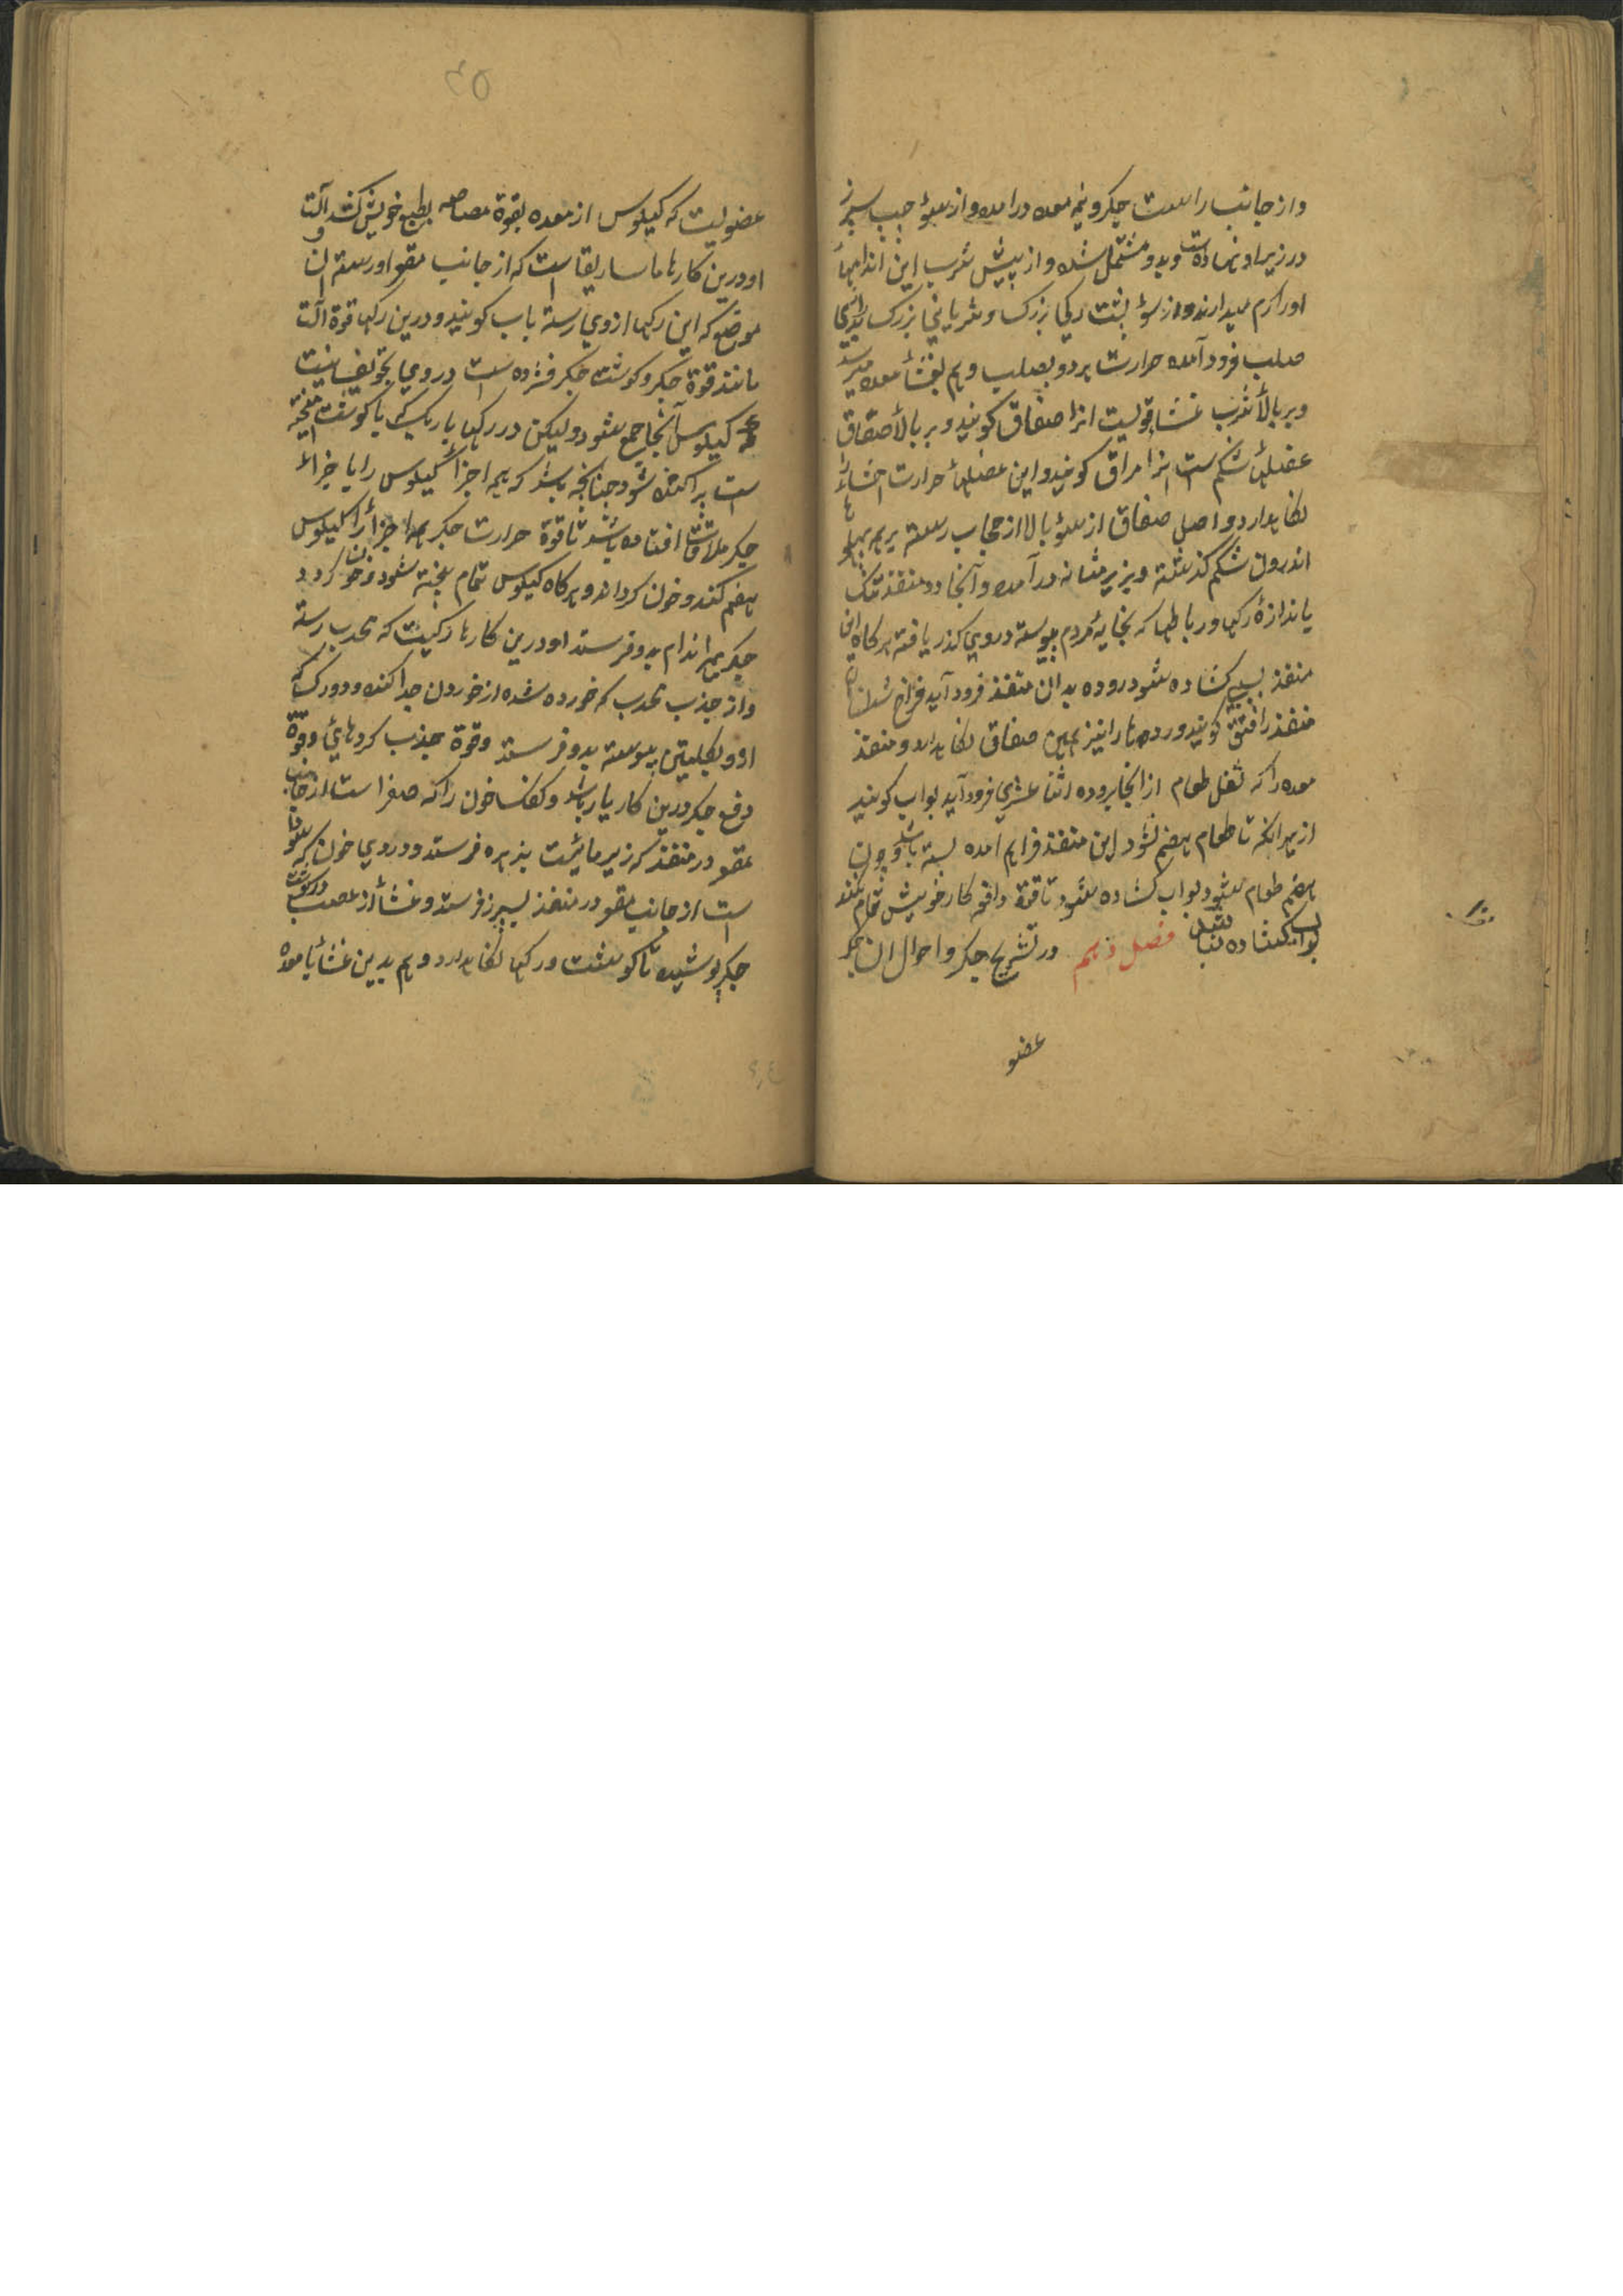 واز جانب راست جکر و نیمه معده درامده واز سوٴ جب سبرز
در زیر او نهادست وبدو مشتمل شده واز پیش ثرب این اندامها
اورا کرم میدارند واز سوٴ بشت رکي بزرک وشریاني بزرک بدرازي
صلب فرود آمده حرارت هر دو بصلب وهم بغشأ معده میرسد
وبر بالأ ثرب غشأ قویست انرا صفاق کویند وبر بالأ صفاق
عضلهٔ شکم ست انرا مراق کویند واین عضلهأ حرارت احشاء را
نکاه دارد واصل صفاق از سوٴ بالا از حجاب رسته برهمه بهلو
اندرون شکم کذشته وبزیر مثانه درآمده وآنجا دو منفذ تنک
باندازهٔ رکها ورباطها که بخایهٔ مردم پیوسته دروي کذر یافته هرکاه این
منفذ بسببي کشاده شود روده بدان منفذ فرود آید فراخ شدن ان
منفذ را فتق کویند ورودها را نیز همین صفاق نکاه دارد ومنفذ
معده را که ثفل طعام از انجا بروده اثنا عشري فرود آید بواب کویند
از بهر انکه تا طعام هضم نشود این منفذ فراهم امده بسته باشد وچون
هضم طعام بشود بواب کشاده شود تا قوة دافعه کار خویش تمام بکند
بواب کشاده باشد فصل دهم در تشریح جکر واحوال ان جکر
عضو
۳۵
عضویست که کیلوس از معده بقوة مصاصه بطبع خویش کشد آلت
او درین کارها ماساریقا است که از جانب مقعر او رسته ان
موضع که این رکها ازوي رسته باب کویند ودرین رکها قوة آلت
مانند قوة جکر وکوشت جکر فشرده ست در وي تجویف نیست
که کیلوس آنجا جمع شود ولیکن در رکهأ باریک که با کوشت امیخته
است براکنده شود جنانجه باشد که همه اجزأ کیلوس را با جزاء
جکر ملاقات افتاده باشد تا قوة حرارت جکر همه اجزأ را کیلوس
هضم کند وخون کرداند وهرکاه کیلوس تمام بخته شود وخون کردد
جکر بهمه اندام بدو فرستد او درین کارها رکیست که محدب رسته
واز جذب محدب که خورده شده از خوردن جدا کننده ودو رک که
ازو بکلیتین پیوسته بدو فرستد وقوة جذب کردهائ وقوة
دفع جکر درین کار یار باشد وکفک خون را که صفرا ست از جانب
مقعر در منفذ که زیر مائیت بزهره فرستد ودردي خون که سودا
ست از جانب مقعر در منفذ سبرز فرستد وغشأ از عصب در کوشت
جکر پوشیده تا کوشت ورکها نکاه دارد وهم بدین غشأ با معده